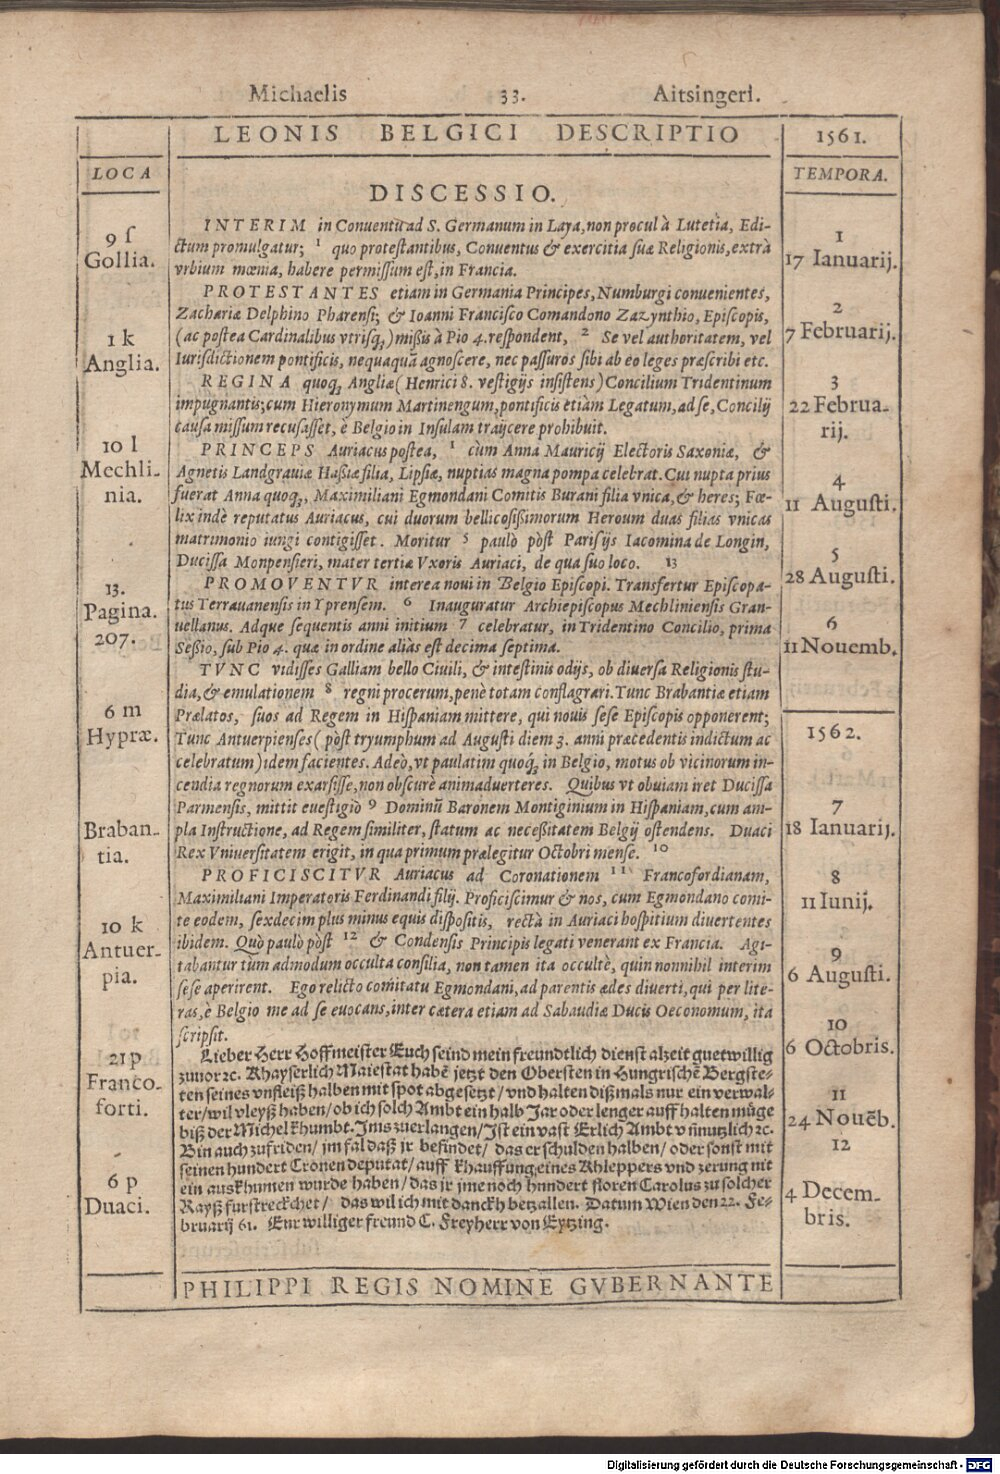 Michaelis 33. Aitsingeri.
LEONIS BELGICI DESCRIPTIO
1561.
LOCA
TEMPORA.
DISCESSIO.
INTERIM in Conuentu ad S. Germanum in Laya, non procul à Lutetia, Edi-
ctum promulgatur; 1 quo protestantibus, Conuentus & exercitia suæ Religionis, extrà
vrbium mœnia, habere permissum est, in Francia.
PROTESTANTES etiam in Germania Principes, Numburgi conuenientes,
Zachariæ Delphino Pharensi; & Ioanni Francisco Comandono Zazynthio, Episcopis,
(ac postea Cardinalibus vtrisq́;) mißis à Pio 4. respondent, 2 Se vel authoritatem, vel
Iurisdictionem pontificis, nequaquā agnoscere, nec passuros sibi ab eo leges præscribi etc.
REGINA quoq; Angliæ (Henrici 8. vestigijs insistens) Concilium Tridentinum
impugnantis; cum Hieronymum Martinengum, pontificis etiàm Legatum, ad se, Concilij
causa missum recusasset, è Belgio in Insulam traijcere prohibuit.
PRINCEPS Auriacus postea, 1 cùm Anna Mauricij Electoris Saxoniæ, &
Agnetis Landgrauiæ Haßiæ filia, Lipsiæ, nuptias magna pompa celebrat. Cui nupta prius
fuerat Anna quoq;, Maximiliani Egmondani Comitis Burani filia vnica, & heres; Fœ-
lix indè reputatus Auriacus, cui duorum bellicosißimorum Heroum duas filias vnicas
matrimonio iungi contigisset. Moritur 5 paulò pòst Parisijs Iacomina de Longin,
Ducissa Monpensieri, mater tertiæ Vxoris Auriaci, de qua suo loco. 13
PROMOVENTVR interea noui in Belgio Episcopi. Transfertur Episcopa-
tus Terrauanensis in Yprensem. 6 Inauguratur Archiepiscopus Mechliniensis Gran-
uellanus. Adque sequentis anni initium 7 celebratur, in Tridentino Concilio, prima
Seßio, sub Pio 4. quæ in ordine aliàs est decima septima.
TVNC vidisses Galliam bello Ciuili, & intestinis odijs, ob diuersa Religionis stu-
dia, & emulationem 8 regni procerum, penè totam conflagrari. Tunc Brabantiæ etiam
Prælatos, suos ad Regem in Hispaniam mittere, qui nouis sese Episcopis opponerent;
Tunc Antuerpienses (pòst tryumphum ad Augusti diem 3. anni præcedentis indictum ac
celebratum) idem facientes. Adeò, vt paulatim quoq́; in Belgio, motus ob vicinorum in-
cendia regnorum exarsisse, non obscurè animaduerteres. Quibus vt obuiam iret Ducissa
Parmensis, mittit euestigiò 9 Dominū Baronem Montiginium in Hispaniam, cum am-
pla Instructione, ad Regem similiter, statum ac neceßitatem Belgij ostendens. Duaci
Rex Vniuersitatem erigit, in qua primum prælegitur Octobri mense. 10
PROFICISCITVR Auriacus ad Coronationem 11 Francofordianam,
Maximiliani Imperatoris Ferdinandi filij. Proficiscimur & nos, cum Egmondano comi-
te eodem, sexdecim plus minus equis dispositis, rectà in Auriaci hospitium diuertentes
ibidem. Quò paulò pòst 12 & Condensis Principis legati venerant ex Francia. Agi-
tabantur tùm admodum occulta consilia, non tamen ita occultè, quin nonnihil interim
sese aperirent. Ego relicto comitatu Egmondani, ad parentis ædes diuerti, qui per lite-
ras, è Belgio me ad se euocans, inter cætera etiam ad Sabaudiæ Ducis Oeconomum, ita
scripsit.
Lieber Herr Hoffmeister Euch seind mein freundtlich dienst alzeit guetwillig
zuuor ꝛc. Khayserlich Maiestat habē jetzt den Obersten in Hungrischē Bergste-
ten seines vnfleiß halben mit spot abgesetzt / vnd halten dißmals nur ein verwal-
ter / wil vleyß haben / ob ich solch Ambt ein halb Jar oder lenger auff halten müge
biß der Michel khumbt. Ims zuerlangen / Ist ein vast Erlich Ambt vn̄ nutzlich ꝛc.
Bin auch zufriden / im fal daß jr befindet / das er schulden halben / oder sonst mit
seinen hundert Cronen deputat / auff khauffung eines Khleppers vnd zerung nit
ein auskhumen wurde haben / das jr jme noch hundert floren Carolus zu solcher
Rayß furstreckchet / das wil ich mit danckh betzallen. Datum Wien den 22. Fe-
bruarij 61. Eur williger freund C. Freyherr von Eytzing.
PHILIPPI REGIS NOMINE GVBERNANTE
9 f
Gollia.
1 k
Anglia.
10 l
Mechli-
nia.
13.
Pagina.
207.
6 m
Hypræ.
Braban-
tia.
10 k
Antuer-
pia.
21 p
Franco-
forti.
6 p
Duaci.
1
17 Ianuarij.
2
7 Februarij.
3
22 Februa-
rij.
4
11 Augusti.
5
28 Augusti.
6
11 Nouemb.
1562.
7
18 Ianuarij.
8
11 Iunij.
9
6 Augusti.
10
6 Octobris.
11
24 Nouēb.
12
4 Decem-
bris.
Digitalisierung gefördert durch die Deutsche Forschungsgemeinschaft - DFG